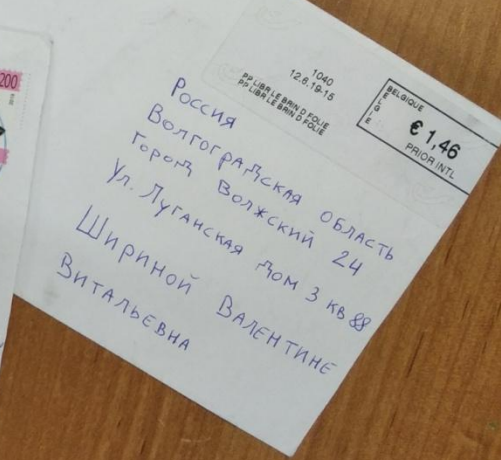 200
1040
12.8.19-15
PP LIBR LE BRIN D FOLIE
PP LIBR LE BRIN D FOLIE
BELGIQUE
BELGIE
€ 1,46
PRIOR INTL
Россия
Волгоградская область
город Волжский 24
ул. Луганская дом 3 кв 88
Шириной Валентине
Витальевна